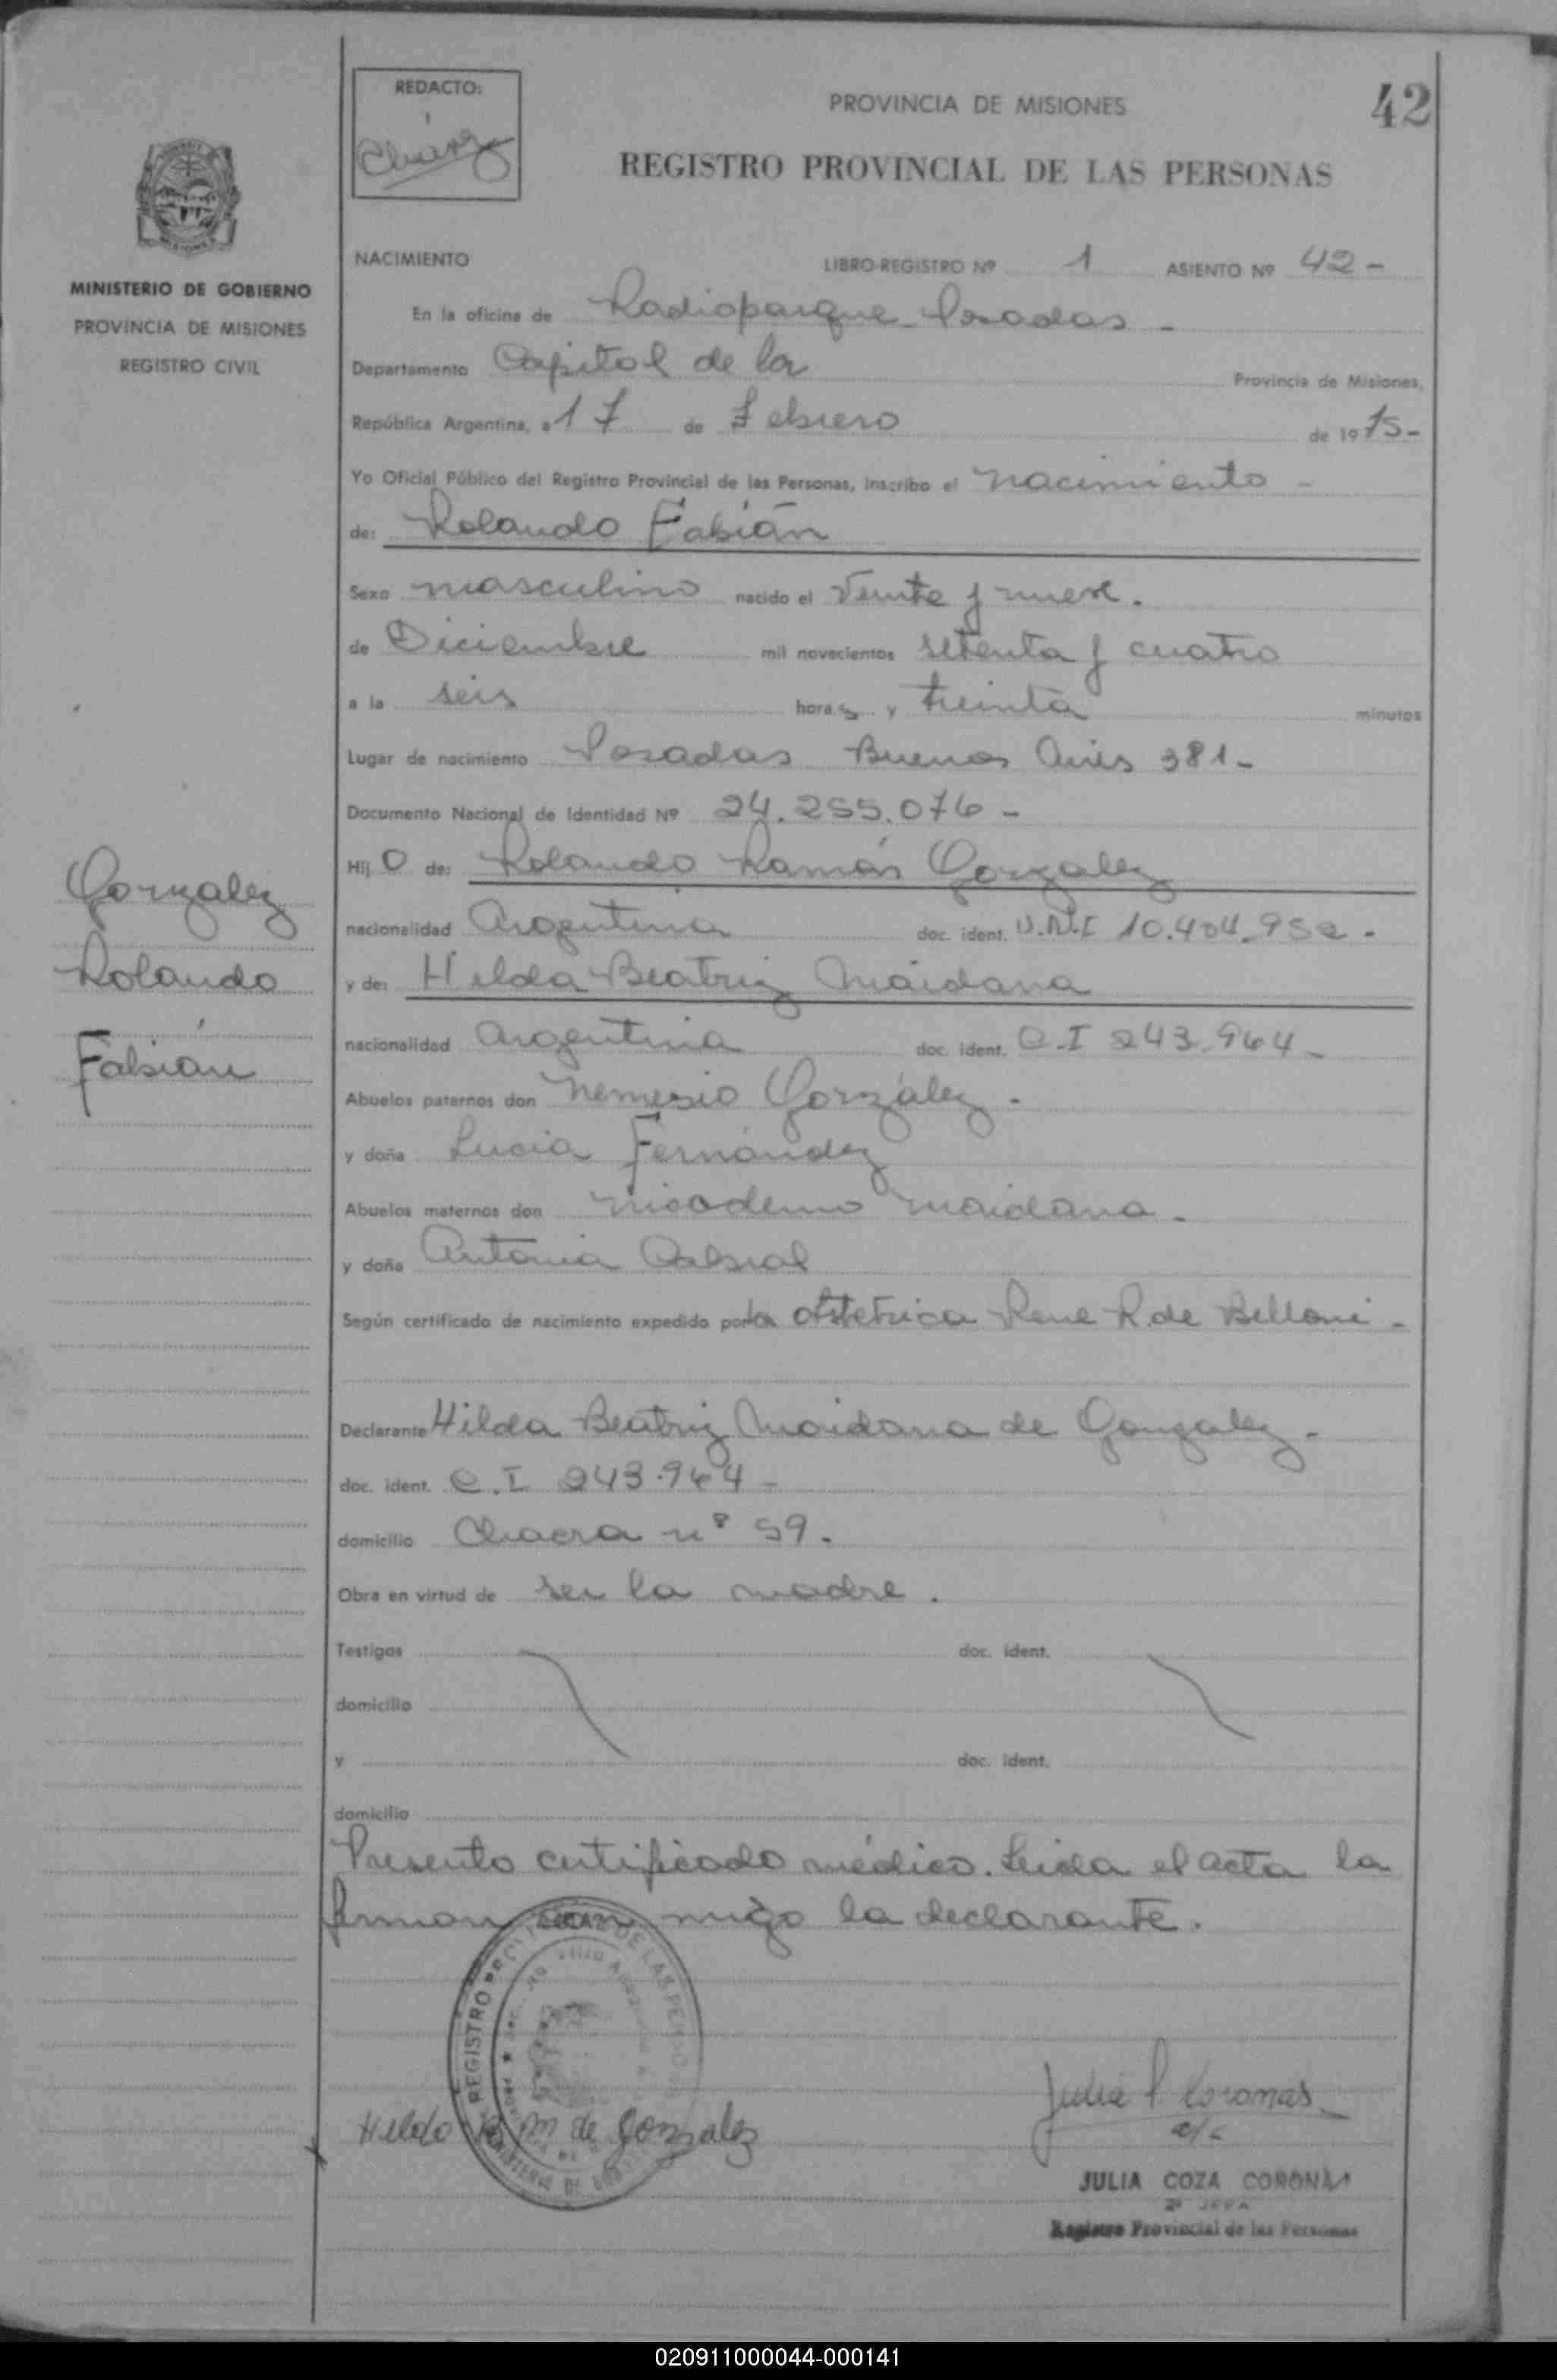 REDACTO:
PROVINCIA DE MISIONES
42
REGISTRO PROVINCIAL DE LAS PERSONAS
MINISTERIO DE GOBIERNO
PROVINCIA DE MISIONES
REGISTRO CIVIL
NACIMIENTO LIBRO-REGISTRO Nº 1 ASIENTO Nº 42 -
En la oficina de Radioparque Posadas -
Departamento Capital de la Provincia de Misiones,
República Argentina, a 17 de Febrero de 1975-
Yo Oficial Público del Registro Provincial de las Personas, inscribo el nacimiento -
de: Rolando Fabián
Sexo masculino nacido el Veinte y nueve.
de Diciembre mil novecientos setenta y cuatro
a la seis horas y treinta minutos
Lugar de nacimiento Posadas Buenos Aires 381-
Documento Nacional de Identidad Nº 24.255.076 -
Hijo de: Rolando Ramón Gonzalez
nacionalidad Argentina doc. ident. D.N.I 10.404.952 -
y de: Hilda Beatriz Maidana
nacionalidad Argentina doc. ident. C.I 243.964 -
Abuelos paternos don Nemesio González.
y doña Lucia Fernández
Abuelos maternos don Nicodemo Maidana.
y doña Antonia Cabral
Según certificado de nacimiento expedido por la Obstetrica Rene R. de Belloni -
Declarante Hilda Beatriz Maidana de Gonzalez.
doc. ident. C.I 243.964 -
domicilio Chacra nº 59.
Obra en virtud de ser la madre.
Testigos doc. ident.
domicilio
y doc. ident.
domicilio
Presento certificado médico. Leida el acta la
firman con migo la declarante.
Gonzalez
Rolando
Fabián
REGISTRO DE LAS
Hilda B M de Gonzalez
Julia P. Coronas
a/c
JULIA COZA CORONAS
2ª JEFA
Registro Provincial de las Personas
020911000044-000141